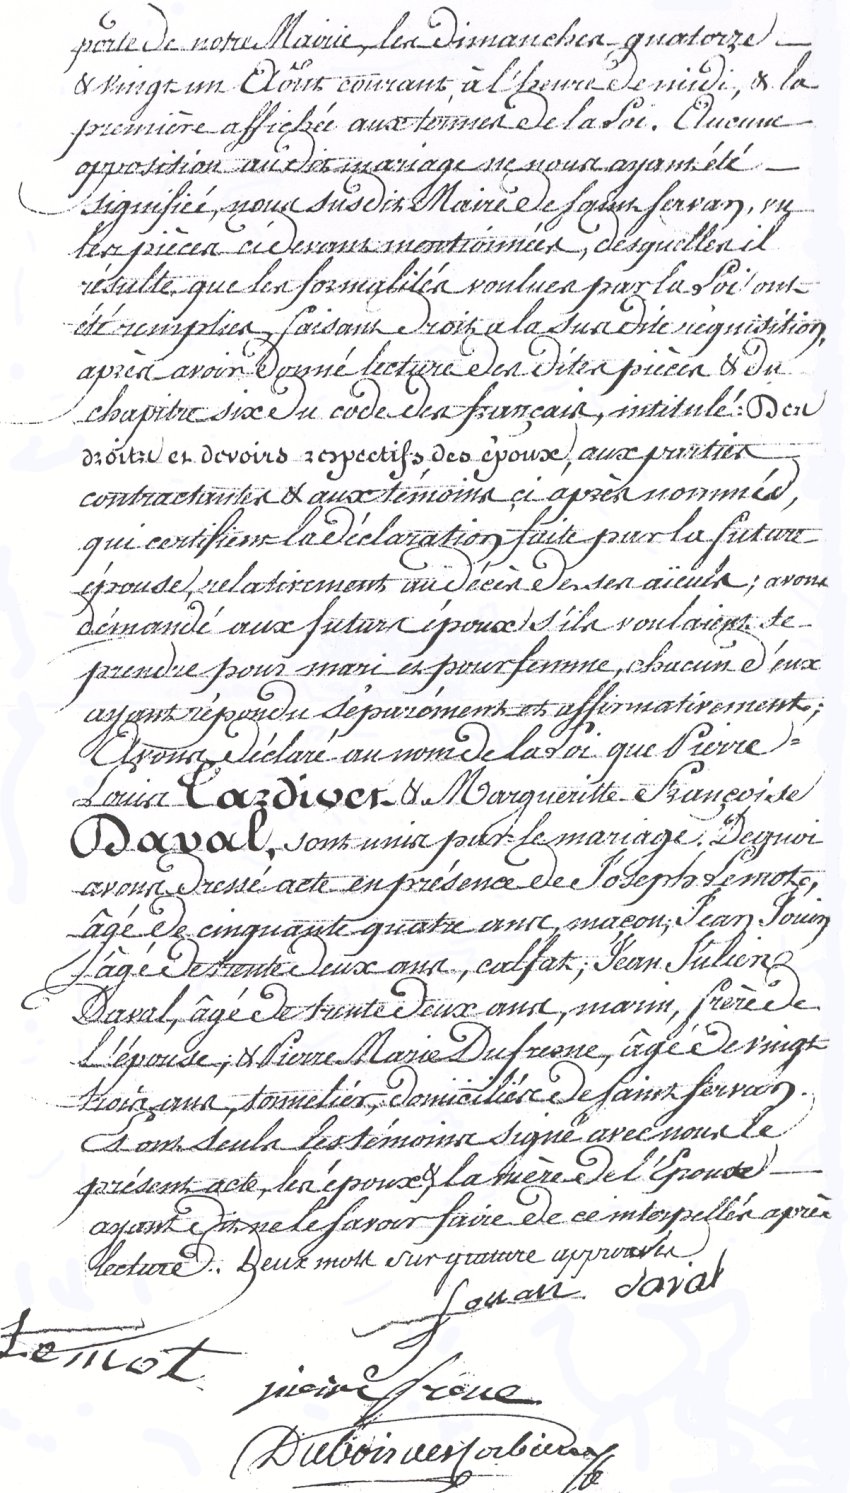 porte de notre Mairie, les dimanches quatorze
& vingt un Août courant à l'heure de midi, & la
première affichée aux termes de la Loi. Aucune
opposition au dit mariage ne nous ayant été
signifiée, nous susdit Maire de saint servan, vu
les pièces ci devant mentionnées, desquelles il
résulte que les formalités voulues par la Loi ont
été remplies, faisant droit a la susdite réquisition,
après avoir donné lecture des dites pièces & du
chapitre six du code des français, intitulé: Des
droits et devoirs respectifs des époux, aux parties
contractantes & aux témoins ci après nommés,
qui certifient la déclaration faite par la future
épouse, relativement au décès de ses aïeuls; avons
demandé aux futurs époux s'ils voulaient se
prendre pour mari et pour femme, chacun d'eux
ayant répondu séparément et affirmativement;
Avons déclaré au nom de la Loi que Pierre=
Louis Tardivet & Margueritte Françoise
Daval, sont unis par le mariage. De quoi
avons dressé acte en présence de Joseph Lemot,
âgé de cinquante quatre ans, maçon; Jean
âgé de trente deux ans, calfat; Jean Julien
Daval, âgé de trente deux ans, marin, frère de
l'épouse; & Pierre Marie Dufresne, âgé de vingt
trois ans, tonnelier, domiciliés de saint servan.
Et ont seuls les témoins signé avec nous le
présent acte, les époux & la mère de l'Epouse
ayant dit ne le savoir faire de ce interpellés après
lecture. Deux mots sur grature approuvés
daval
Lemot
pierre